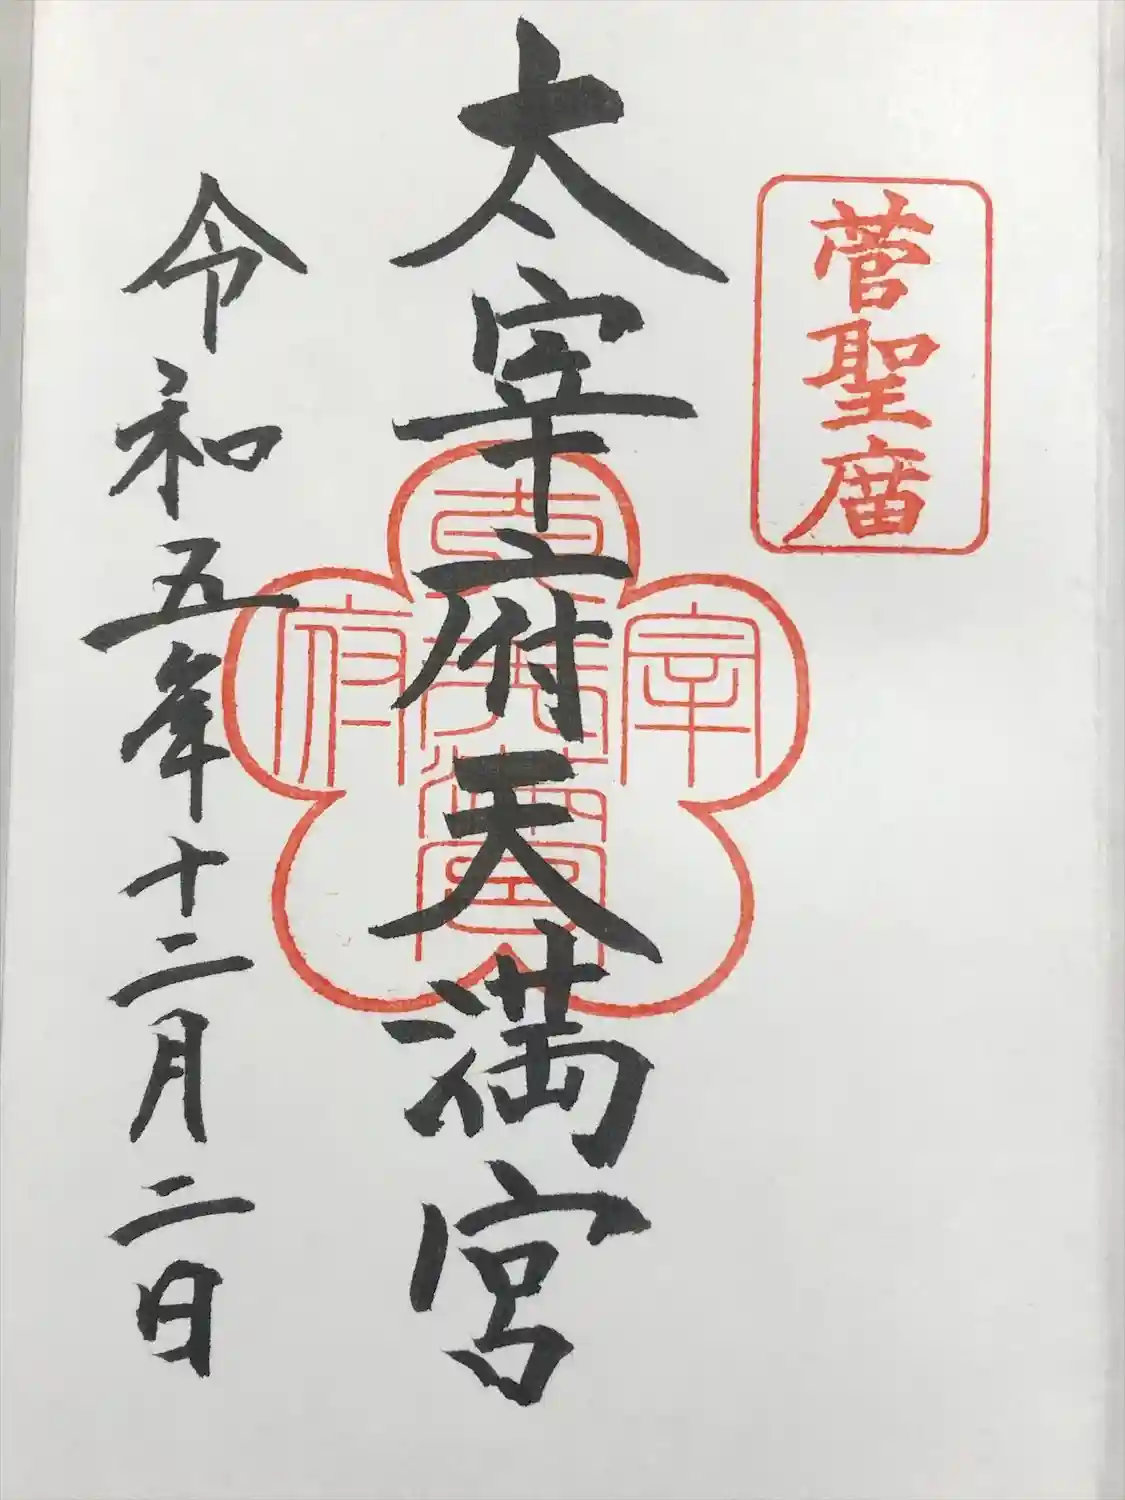 菅聖廟
太宰府天満宮
令和五年十二月二日